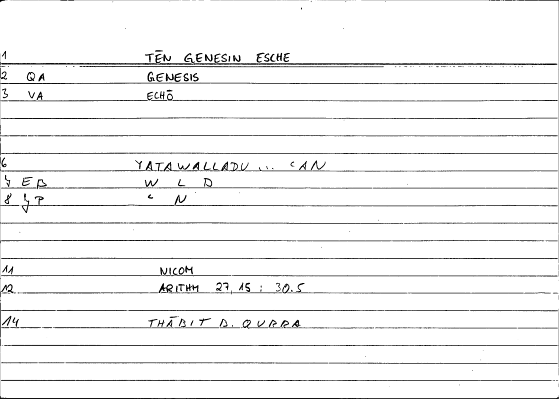 1 TĒN GENESIN ESCHE
2 QA GENESIS
3 VA ECHŌ
6 YATAWALLADU ... ʿAN
EB W L D
8 ʿ N
11 NICOM
12 ARITHM 27,15 : 30.5
14 THĀBIT B. QURRA